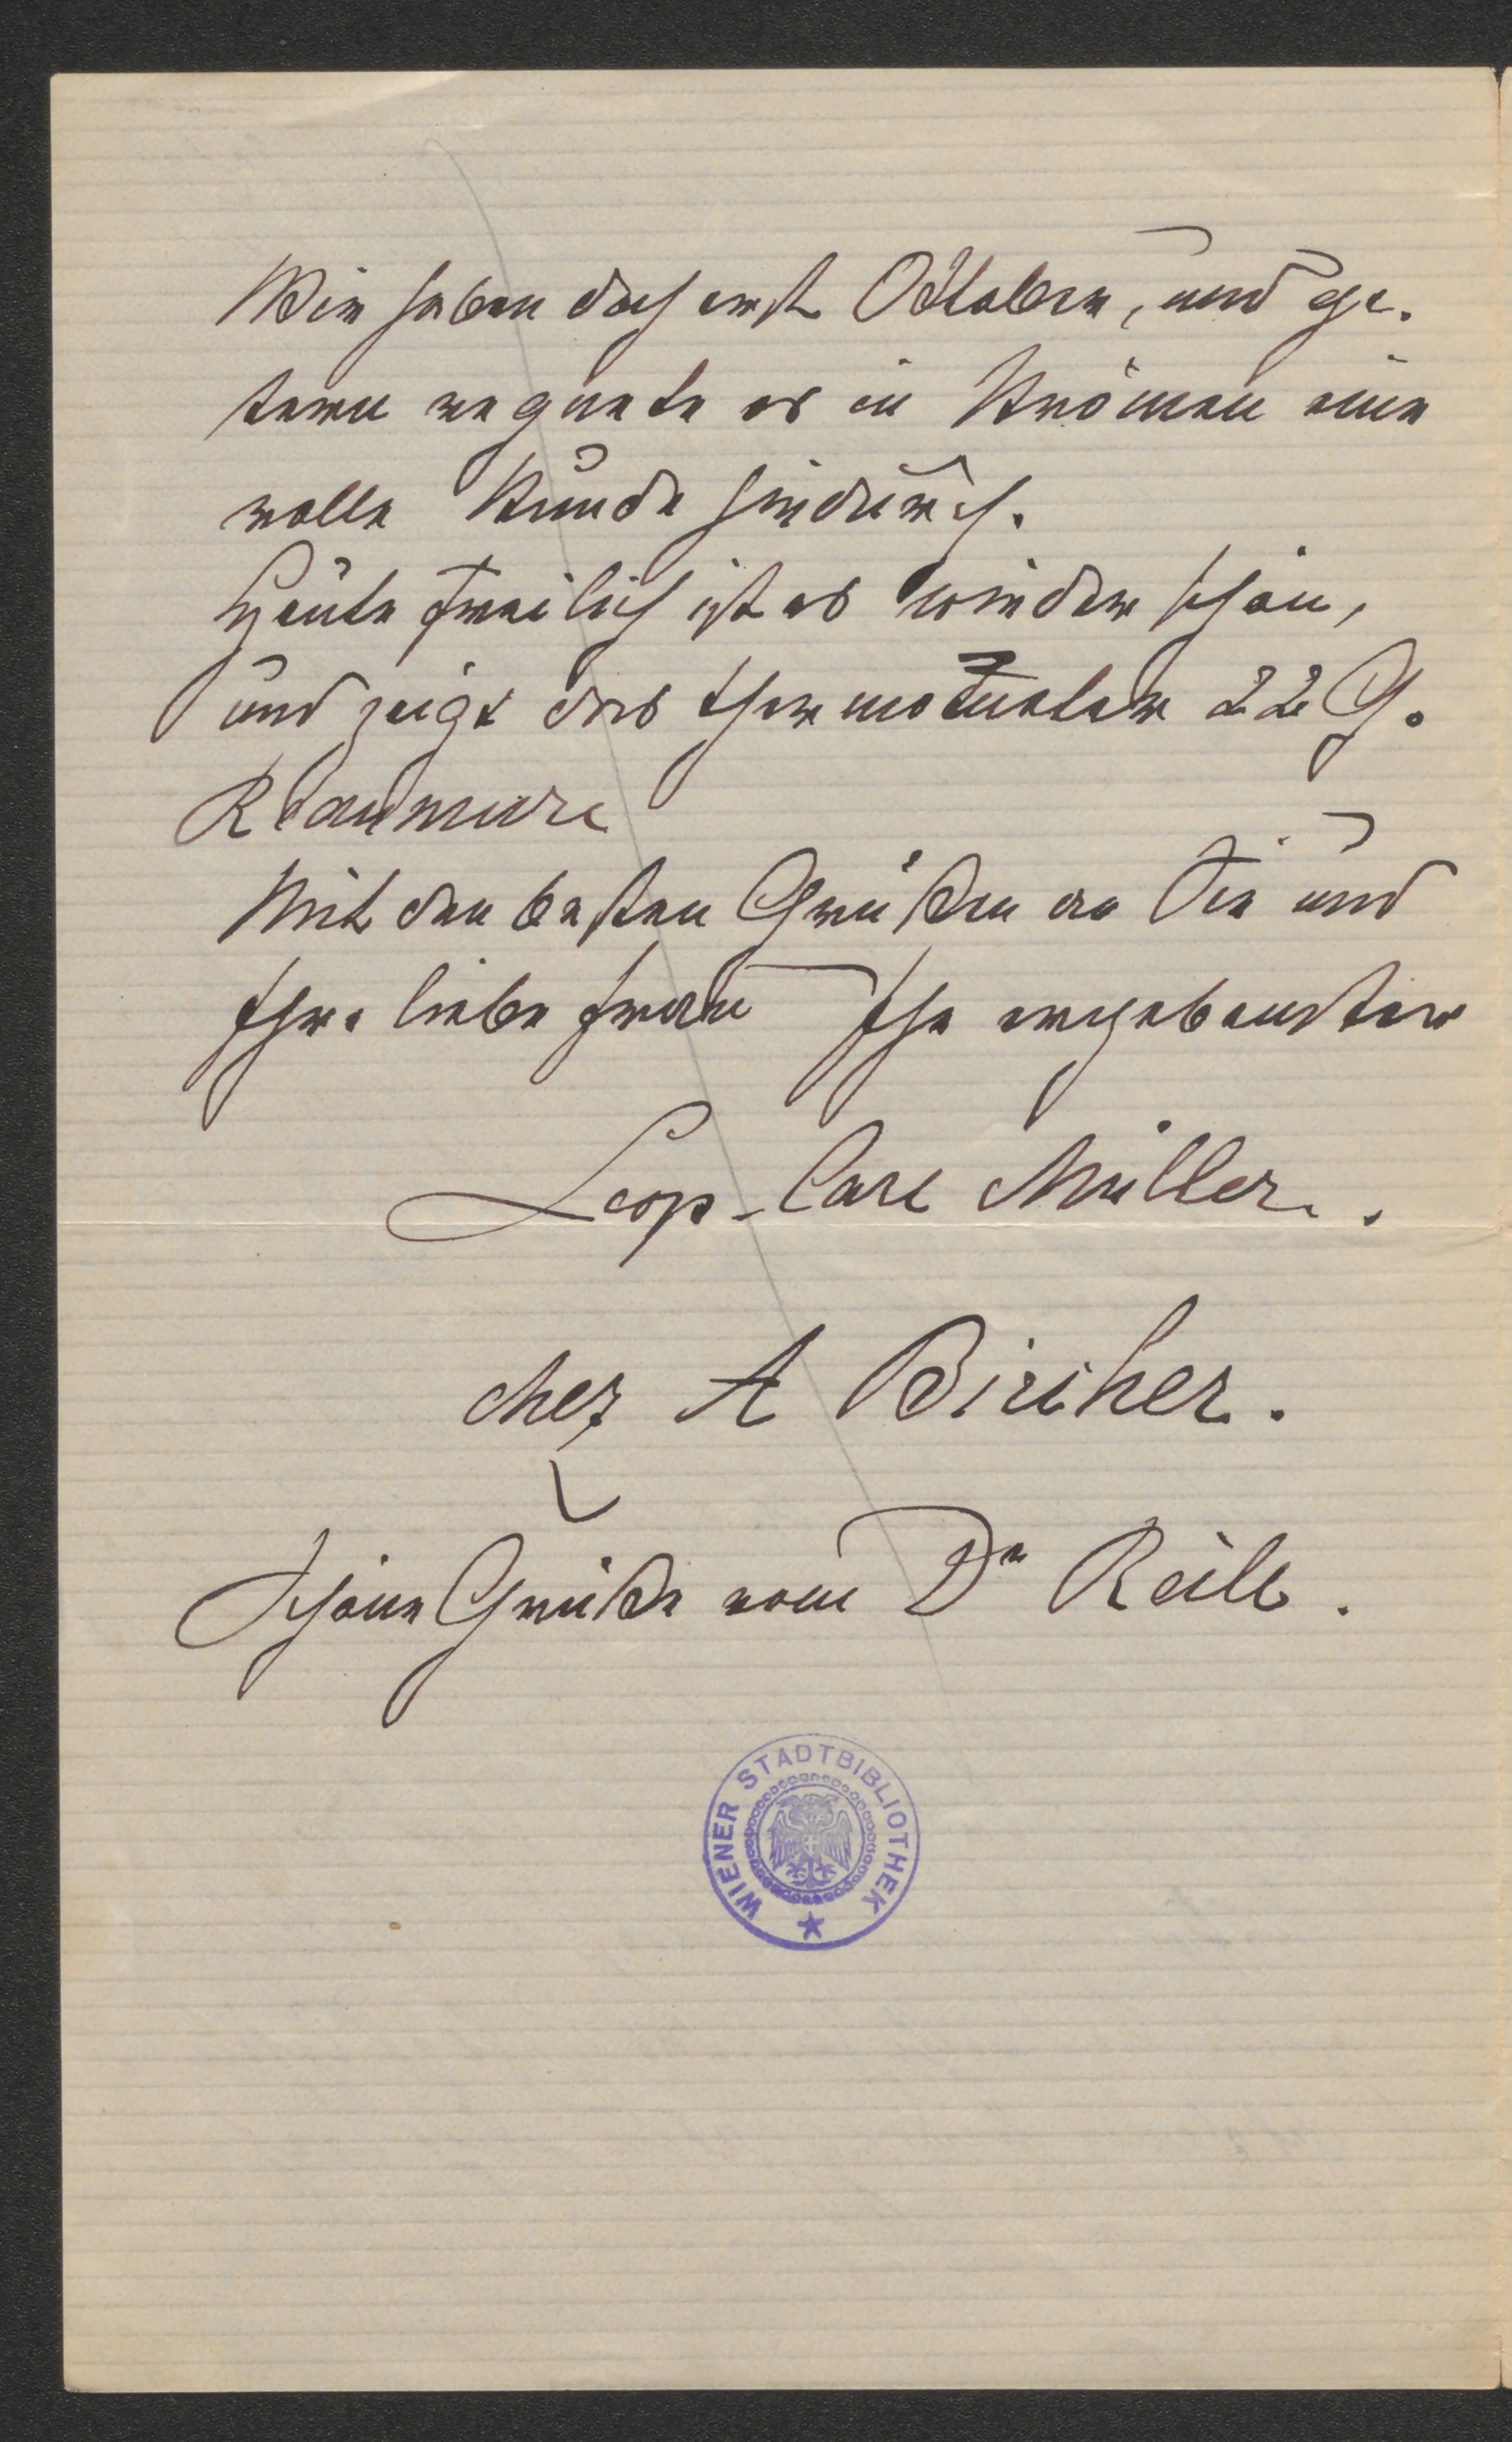 Wir haben doch erst Oktober, und ge.
stern regnete es in Strömen eine
volle Stunde hindurch.
Heute freilich ist es wieder schön,
und zeigt das Thermometer 22 G.
Reaumure
Mit den besten Grüßen an Sie und
Ihre liebe Frau Ihr ergebenster
Leop. Carl Müller.
chez A Bircher.
Schöne Grüße vom Dr Reil.
WIENER STADTBIBLIOTHEK